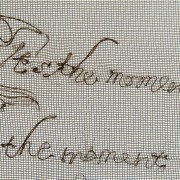 the momen
the moment